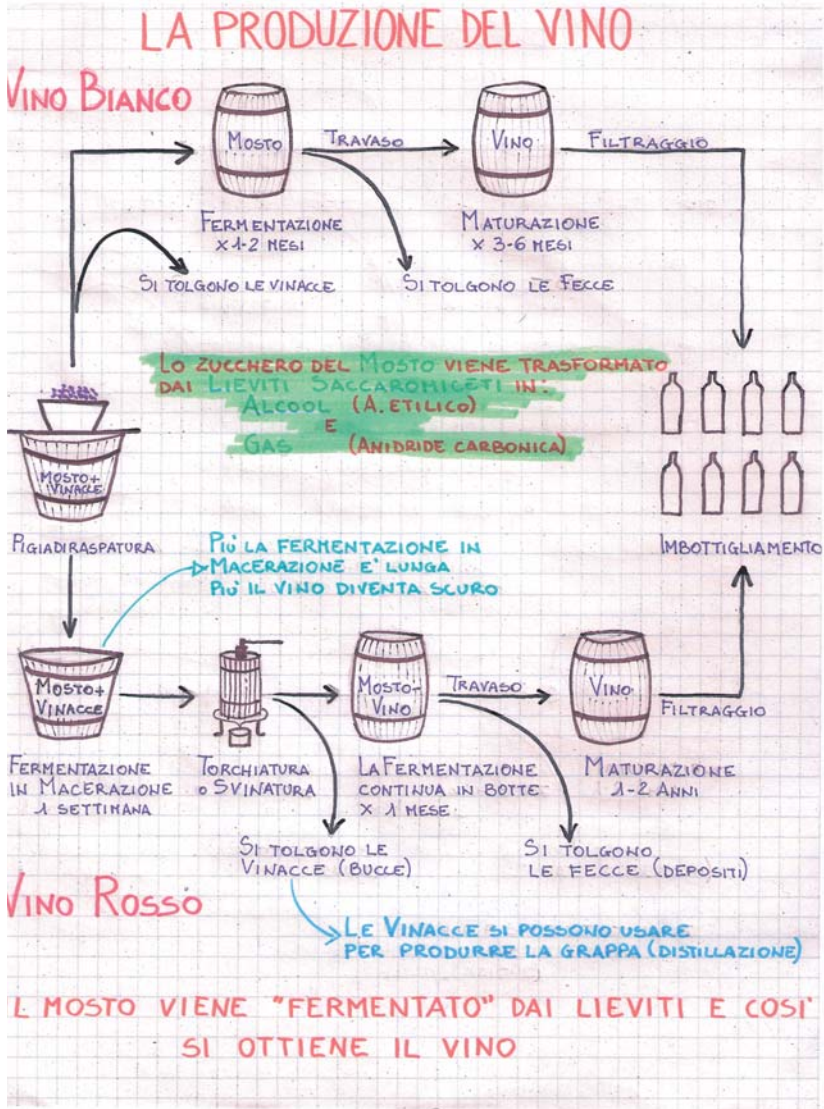 LA PRODUZIONE DEL VINO
VINO BIANCO
MOSTO
TRAVASO
VINO
FILTRAGGIO
FERMENTAZIONE
X 1-2 MESI
MATURAZIONE
X 3-6 MESI
SI TOLGONO LE VINACCE
SI TOLGONO LE FECCE
LO ZUCCHERO DEL MOSTO VIENE TRASFORMATO
DAI LIEVITI SACCAROMICETI IN:
ALCOOL (A. ETILICO)
E
GAS (ANIDRIDE CARBONICA)
MOSTO+
VINACCE
PIGIADIRASPATURA
IMBOTTIGLIAMENTO
PIÙ LA FERMENTAZIONE IN
MACERAZIONE E' LUNGA
PIÙ IL VINO DIVENTA SCURO
MOSTO+
VINACCE
MOSTO-
VINO
TRAVASO
VINO
FILTRAGGIO
FERMENTAZIONE
IN MACERAZIONE
1 SETTIMANA
TORCHIATURA
O SVINATURA
LA FERMENTAZIONE
CONTINUA IN BOTTE
X 1 MESE
MATURAZIONE
1-2 ANNI
SI TOLGONO LE
VINACCE (BUCCE)
SI TOLGONO
LE FECCE (DEPOSITI)
VINO ROSSO
LE VINACCE SI POSSONO USARE
PER PRODURRE LA GRAPPA (DISTILLAZIONE)
L MOSTO VIENE "FERMENTATO" DAI LIEVITI E COSI'
SI OTTIENE IL VINO